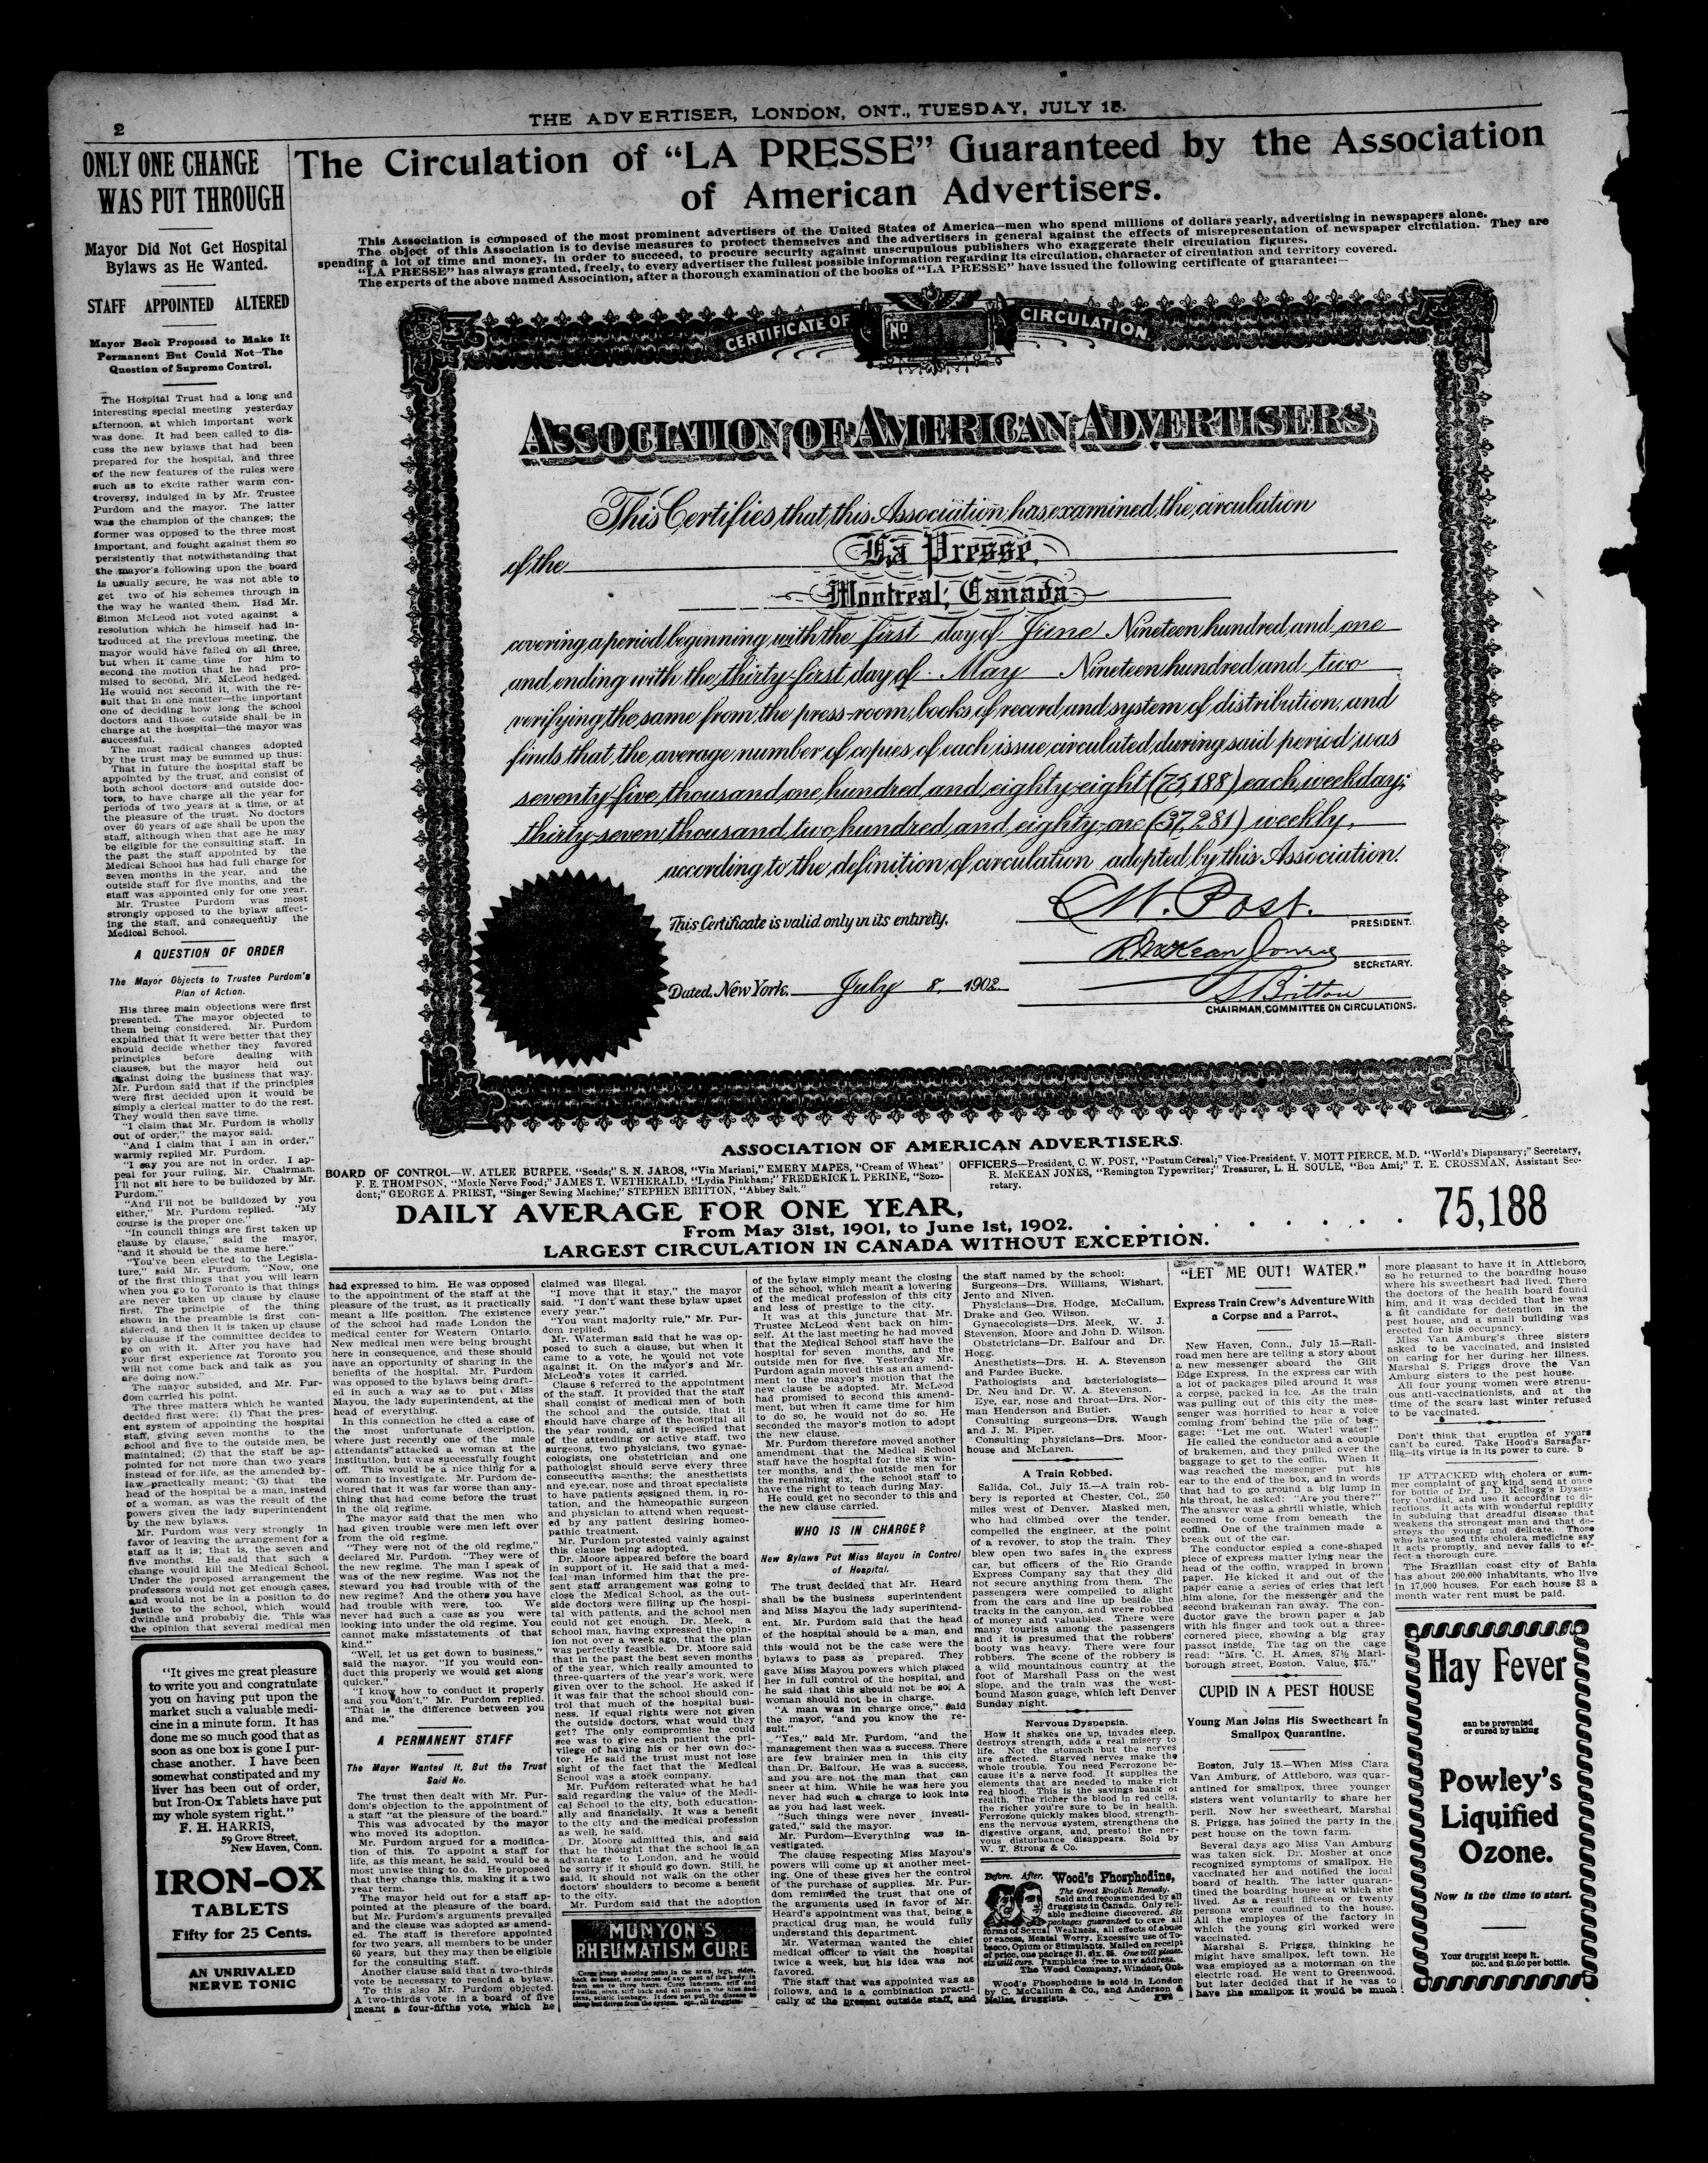 2
THE ADVERTISER, LONDON, ONT., TUESDAY, JULY 15.
ONLY ONE CHANGE
WAS PUT THROUGH
Mayor Did Not Get Hospital
Bylaws as He Wanted.
STAFF APPOINTED ALTERED
Mayor Beck Proposed to Make It
Permanent But Could Not—The
Question of Supreme Control.
The Hospital Trust had a long and
interesting special meeting yesterday
afternoon, at which important work
was done. It had been called to dis-
cuss the new bylaws that had been
prepared for the hospital, and three
of the new features of the rules were
such as to excite rather warm con-
troversy, indulged in by Mr. Trustee
Purdom and the mayor. The latter
was the champion of the changes; the
former was opposed to the three most
important, and fought against them so
persistently that notwithstanding that
the mayor's following upon the board
is usually secure, he was not able to
get two of his schemes through in
the way he wanted them. Had Mr.
Simon McLeod not voted against a
resolution which he himself had in-
troduced at the previous meeting, the
mayor would have failed on all three,
but when it came time for him to
second the motion that he had pro-
mised to second, Mr. McLeod hedged.
He would not second it, with the re-
sult that in one matter—the important
one of deciding how long the school
doctors and those outside shall be in
charge at the hospital—the mayor was
successful.
The most radical changes adopted
by the trust may be summed up thus:
That in future the hospital staff be
appointed by the trust, and consist of
both school doctors and outside doc-
tors, to have charge all the year for
periods of two years at a time, or at
the pleasure of the trust. No doctors
over 60 years of age shall be upon the
staff, although when that age he may
be eligible for the consulting staff. In
the past the staff appointed by the
Medical School has had full charge for
seven months in the year, and the
outside staff for five months, and the
staff was appointed only for one year.
Mr. Trustee Purdom was most
strongly opposed to the bylaw affect-
ing the staff, and consequently the
Medical School.
A QUESTION OF ORDER
The Mayor Objects to Trustee Purdom's
Plan of Action.
His three main objections were first
presented. The mayor objected to
them being considered. Mr. Purdom
explained that it were better that they
should decide whether they favored
principles before dealing with
clauses, but the mayor held out
against doing the business that way.
Mr. Purdom said that if the principles
were first decided upon it would be
simply a clerical matter to do the rest.
They would then save time.
"I claim that Mr. Purdom is wholly
out of order," the mayor said.
"And I claim that I am in order,"
warmly replied Mr. Purdom.
"I say you are not in order. I ap-
peal for your ruling, Mr. Chairman.
I'll not sit here to be bulldozed by Mr.
Purdom."
"And I'll not be bulldozed by you
either," Mr. Purdom replied. "My
course is the proper one."
"In council things are first taken up
clause by clause," said the mayor,
"and it should be the same here."
"You've been elected to the Legisla-
ture," said Mr. Purdom. "Now, one
of the first things that you will learn
when you go to Toronto is that things
are never taken up clause by clause
first. The principle of the thing
shown in the preamble is first con-
sidered, and then it is taken up clause
by clause if the committee decides to
go on with it. After you have had
your first experience at Toronto you
will not come back and talk as you
are doing now."
The mayor subsided, and Mr. Pur-
dom carried his point.
The three matters which he wanted
decided first were: (1) That the pres-
ent system of appointing the hospital
staff, giving seven months to the
school and five to the outside men, be
maintained; (2) that the staff be ap-
pointed for not more than two years
instead of for life, as the amended by-
law practically meant; (3) that the
head of the hospital be a man, instead
of a woman, as was the result of the
powers given the lady superintendent
by the new bylaws.
Mr. Purdom was very strongly in
favor of leaving the arrangement for a
staff as it is; that is, the seven and
five months. He said that such a
change would kill the Medical School.
Under the proposed arrangement the
professors would not get enough cases,
and would not be in a position to do
justice to the school, which would
dwindle and probably die. This was
the opinion that several medical men
"It gives me great pleasure
to write you and congratulate
you on having put upon the
market such a valuable medi-
cine in a minute form. It has
done me so much good that as
soon as one box is gone I pur-
chase another. I have been
somewhat constipated and my
liver has been out of order,
but Iron-Ox Tablets have put
my whole system right."
F. H. HARRIS,
59 Grove Street,
New Haven, Conn.
IRON-OX
TABLETS
Fifty for 25 Cents.
AN UNRIVALED
NERVE TONIC
The Circulation of "LA PRESSE" Guaranteed by the Association
of American Advertisers.
This Association is composed of the most prominent advertisers of the United States of America—men who spend millions of dollars yearly, advertising in newspapers alone.
The object of this Association is to devise measures to protect themselves and the advertisers in general against the effects of misrepresentation of newspaper circulation. They are
spending a lot of time and money, in order to succeed, to procure security against unscrupulous publishers who exaggerate their circulation figures.
"LA PRESSE" has always granted, freely, to every advertiser the fullest possible information regarding its circulation, character of circulation and territory covered.
The experts of the above named Association, after a thorough examination of the books of "LA PRESSE" have issued the following certificate of guarantee:—
CERTIFICATE OF
No
CIRCULATION
ASSOCIATION OF AMERICAN ADVERTISERS
This Certifies that this Association has examined the circulation
of the La Presse,
Montreal, Canada
covering a period beginning with the first day of June Nineteen hundred and one
and ending with the thirty-first day of May Nineteen hundred and two
verifying the same from the press-room, books of record and system of distribution, and
finds that the average number of copies of each issue circulated during said period was
seventy-five thousand one hundred and eighty-eight (75,188) each weekday;
thirty-seven thousand two hundred and eighty-one (37,281) weekly,
according to the definition of circulation adopted by this Association.
This Certificate is valid only in its entirety.
C. W. Post.
PRESIDENT.
R. McKean Jones
SECRETARY.
Dated, New York, July 8, 1902
S Britton
CHAIRMAN, COMMITTEE ON CIRCULATIONS.
ASSOCIATION OF AMERICAN ADVERTISERS.
BOARD OF CONTROL—W. ATLEE BURPEE, "Seeds;" S. N. JAROS, "Vin Mariani," EMERY MAPES, "Cream of Wheat"
F. E. THOMPSON, "Moxie Nerve Food;" JAMES T. WETHERALD, "Lydia Pinkham;" FREDERICK L. PERINE, "Sozo-
dont;" GEORGE A. PRIEST, "Singer Sewing Machine;" STEPHEN BRITTON, "Abbey Salt."
OFFICERS—President, C. W. POST, "Postum Cereal;" Vice-President, V. MOTT PIERCE, M.D. "World's Dispensary;" Secretary,
R. McKEAN JONES, "Remington Typewriter;" Treasurer, L. H. SOULE, "Bon Ami;" T. E. CROSSMAN, Assistant Sec-
retary.
DAILY AVERAGE FOR ONE YEAR,
From May 31st, 1901, to June 1st, 1902. . . . . . . . . . . . 75,188
LARGEST CIRCULATION IN CANADA WITHOUT EXCEPTION.
had expressed to him. He was opposed
to the appointment of the staff at the
pleasure of the trust, as it practically
meant a life position. The existence
of the school had made London the
medical center for Western Ontario.
New medical men were being brought
here in consequence, and these should
have an opportunity of sharing in the
benefits of the hospital. Mr. Purdom
was opposed to the bylaws being draft-
ed in such a way as to put Miss
Mayou, the lady superintendent, at the
head of everything.
In this connection he cited a case of
the most unfortunate description,
where just recently one of the male
attendants attacked a woman at the
institution, but was successfully fought
off. This would be a nice thing for a
woman to investigate. Mr. Purdom de-
clared that it was far worse than any-
thing that had come before the trust
in the old regime.
The mayor said that the men who
had given trouble were men left over
from the old regime.
"They were not of the old regime,"
declared Mr. Purdom. "They were of
the new regime. The man I speak of
was of the new regime. Was not the
steward you had trouble with of the
new regime? And the others you have
had trouble with were, too. We
never had such a case as you were
looking into under the old regime. You
cannot make misstatements of that
kind."
"Well, let us get down to business,"
said the mayor. "If you would con-
duct this properly we would get along
quicker."
"I know how to conduct it properly
and you don't," Mr. Purdom replied.
"That is the difference between you
and me."
A PERMANENT STAFF
The Mayor Wanted It, But the Trust
Said No.
The trust then dealt with Mr. Pur-
dom's objection to the appointment of
a staff "at the pleasure of the board."
This was advocated by the mayor
who moved its adoption.
Mr. Purdom argued for a modifica-
tion of this. To appoint a staff for
life, as this meant, he said, would be a
most unwise thing to do. He proposed
that they change this, making it a two
year term.
The mayor held out for a staff ap-
pointed at the pleasure of the board,
but Mr. Purdom's arguments prevailed
and the clause was adopted as amend-
ed. The staff is therefore appointed
for two years, all members to be under
60 years, but they may then be eligible
for the consulting staff.
Another clause said that a two-thirds
vote be necessary to rescind a bylaw.
To this also Mr. Purdom objected.
A two-thirds vote in a board of five
meant a four-fifths vote, which he
claimed was illegal.
"I move that it stay," the mayor
said. "I don't want these bylaw upset
every year."
"You want majority rule," Mr. Pur-
dom replied.
Mr. Waterman said that he was op-
posed to such a clause, but when it
came to a vote, he would not vote
against it. On the mayor's and Mr.
McLeod's votes it carried.
Clause 6 referred to the appointment
of the staff. It provided that the staff
shall consist of medical men of both
the school and the outside, that it
should have charge of the hospital all
the year round, and it specified that
of the attending or active staff, two
surgeons, two physicians, two gynae-
cologists, one obstetrician and one
pathologist should serve every three
consecutive months; the anesthetists
and eye, ear, nose and throat specialists
to have patients assigned them, in ro-
tation, and the homeopathic surgeon
and physician to attend when request-
ed by any patient desiring homeo-
pathic treatment.
Mr. Purdom protested vainly against
this clause being adopted.
Dr. Moore appeared before the board
in support of it. He said that a med-
ical man informed him that the pre-
sent staff arrangement was going to
close the Medical School, as the out-
side doctors were filling up the hospi-
tal with patients, and the school men
could not get enough. Dr. Meek, a
school man, having expressed the opin-
ion not over a week ago, that the plan
was perfectly feasible. Dr. Moore said
that in the past the best seven months
of the year, which really amounted to
three-quarters of the year's work, were
given over to the school. He asked if
it was fair that the school should con-
trol that much of the hospital busi-
ness. If equal rights were not given
the outside doctors, what would they
get? The only compromise he could
see was to give each patient the pri-
vilege of having his or her own doc-
tor. He said the trust must not lose
sight of the fact that the Medical
School was a stock company.
Mr. Purdom reiterated what he had
said regarding the value of the Medi-
cal School to the city, both education-
ally and financially. It was a benefit
to the city and the medical profession
as well, he said.
Dr. Moore admitted this, and said
that he thought that the school is an
advantage to London, and he would
be sorry if it should go down. Still, he
said, it should not walk on the other
doctors' shoulders to become a benefit
to the city.
Mr. Purdom said that the adoption
MUNYON'S
RHEUMATISM CURE
Cures sharp shooting pains in the arms, legs, sides,
back or breast, or soreness of any part of the body in
from one to three hours. Cures lameness, stiff and
swollen joints, stiff back and all pains in the hips and
loins, sciatic lumbago. It does not put the disease to
sleep but drives from the system. 25c., all druggists.
of the bylaw simply meant the closing
of the school, which meant a lowering
of the medical profession of this city
and loss of prestige to the city.
It was at this juncture that Mr.
Trustee McLeod went back on him-
self. At the last meeting he had moved
that the Medical School staff have the
hospital for seven months, and the
outside men for five. Yesterday Mr.
Purdom again moved this as an amend-
ment to the mayor's motion that the
new clause be adopted. Mr. McLeod
had promised to second this amend-
ment, but when it came time for him
to do so, he would not do so. He
seconded the mayor's motion to adopt
the new clause.
Mr. Purdom therefore moved another
amendment that the Medical School
staff have the hospital for the six win-
ter months, and the outside men for
the remaining six, the school staff to
have the right to teach during May.
He could get no seconder to this and
the new clause carried.
WHO IS IN CHARGE?
New Bylaws Put Miss Mayou in Control
of Hospital.
The trust decided that Mr. Heard
shall be the business superintendent
and Miss Mayou the lady superintend-
ent. Mr. Purdom said that the head
of the hospital should be a man, and
this would not be the case were the
bylaws to pass as prepared. They
gave Miss Mayou powers which placed
her in full control of the hospital, and
he said that this should not be so. A
woman should not be in charge.
"A man was in charge once," said
the mayor, "and you know the re-
sult."
"Yes," said Mr. Purdom, "and the
management then was a success. There
are few brainier men in this city
than Dr. Balfour. He was a success,
and you are not the man that can
sneer at him. While he was here you
never had such a charge to look into
as you had last week.
"Such things were never investi-
gated," said the mayor.
Mr. Purdom—Everything was in-
vestigated.
The clause respecting Miss Mayou's
powers will come up at another meet-
ing. One of these gives her the control
of the purchase of supplies. Mr. Pur-
dom reminded the trust that one of
the arguments used in favor of Mr.
Heard's appointment was that, being a
practical drug man, he would fully
understand this department.
Mr. Waterman wanted the chief
medical officer to visit the hospital
twice a week, but his idea was not
favored.
The staff that was appointed was as
follows, and is a combination practi-
cally of the present outside staff, and
the staff named by the school:
Surgeons—Drs. Williams, Wishart,
Jento and Niven.
Physicians—Drs. Hodge, McCallum,
Drake and Geo. Wilson.
Gynaecologists—Drs. Meek, W. J.
Stevenson, Moore and John D. Wilson.
Obstetricians—Dr. Balfour and Dr.
Hogg.
Anesthetists—Drs. H. A. Stevenson
and Pardee Bucke.
Pathologists and bacteriologists—
Dr. Neu and Dr. W. A. Stevenson.
Eye, ear, nose and throat—Drs. Nor-
man Henderson and Butler.
Consulting surgeons—Drs. Waugh
and J. M. Piper.
Consulting physicians—Drs. Moor-
house and McLaren.
A Train Robbed.
Salida, Col., July 15.—A train rob-
bery is reported at Chester, Col., 250
miles west of Denver. Masked men,
who had climbed over the tender,
compelled the engineer, at the point
of a revover, to stop the train. They
blew open two safes in the express
car, but officers of the Rio Grande
Express Company say that they did
not secure anything from them. The
passengers were compelled to alight
from the cars and line up beside the
tracks in the canyon, and were robbed
of money and valuables. There were
many tourists among the passengers
and it is presumed that the robbers'
booty was heavy. There were four
robbers. The scene of the robbery is
a wild mountainous country at the
foot of Marshall Pass on the west
slope, and the train was the west-
bound Mason guage, which left Denver
Sunday night.
Nervous Dyspepsia.
How it shakes one up, invades sleep,
destroys strength, adds a real misery to
life. Not the stomach but the nerves
are affected. Starved nerves make the
whole trouble. You need Ferrozone be-
cause it's a nerve food. It supplies the
elements that are needed to make rich
red blood. This is the savings bank of
health. The richer the blood in red cells,
the richer you're sure to be in health.
Ferrozone quickly makes blood, strength-
ens the nervous system, strengthens the
digestive organs, and, presto! the ner-
vous disturbance disappears. Sold by
W. T. Strong & Co.
Before. After.
Wood's Phosphodine,
The Great English Remedy.
Sold and recommended by all
druggists in Canada. Only reli-
able medicine discovered. Six
packages guaranteed to cure all
forms of Sexual Weakness, all effects of abuse
or excess, Mental Worry, Excessive use of To-
bacco, Opium or Stimulants. Mailed on receipt
of price, one package $1, six, $5. One will please,
six will cure. Pamphlets free to any address.
The Wood Company, Windsor, Ont.
Wood's Phosphodine is sold in London
by C. McCallum & Co., and Anderson &
Nelles, druggists.
"LET ME OUT! WATER."
Express Train Crew's Adventure With
a Corpse and a Parrot.
New Haven, Conn., July 15.—Rail-
road men here are teling a story about
a new messenger aboard the Gilt
Edge Express. In the express car with
a lot of packages piled around it was
a corpse, packed in ice. As the train
was pulling out of this city the mes-
senger was horrified to hear a voice
coming from behind the pile of bag-
gage: "Let me out. Water! water!"
He called the conductor and a couple
of brakemen, and they pulled over the
baggage to get to the coffin. When it
was reached the messenger put his
ear to the end of the box, and in words
that had to go around a big lump in
his throat, he asked: "Are you there?"
The answer was a shrill whistle, which
seemed to come from beneath the
coffin. One of the trainmen made a
break out of the car.
The conductor espied a cone-shaped
piece of express matter lying near the
head of the coffin, wrapped in brown
paper. He kicked it and out of the
paper came a series of cries that left
him alone, for the messenger and the
second brakeman ran away. The con-
ductor gave the brown paper a jab
with his finger and took out a three-
cornered piece, showing a big gray
passot inside. The tag on the cage
read: "Mrs. C. H. Ames, 87½ Marl-
borough street, Boston. Value, $75."
CUPID IN A PEST HOUSE
Young Man Joins His Sweetheart in
Smallpox Quarantine.
Boston, July 15.—When Miss Clara
Van Amburg, of Attleboro, was quar-
antined for smallpox, three younger
sisters went voluntarily to share her
peril. Now her sweetheart, Marshal
S. Priggs, has joined the party in the
pest house on the town farm.
Several days ago Miss Van Amburg
was taken sick. Dr. Mosher at once
recognized symptoms of smallpox. He
vaccinated her and notified the local
board of health. The latter quaran-
tined the boarding house at which she
lived. As a result fifteen or twenty
persons were confined to the house.
All the employes of the factory in
which the young girl worked were
vaccinated.
Marshal S. Priggs, thinking he
might have smallpox, left town. He
was employed as a motorman on the
electric road. He went to Greenwood,
but later decided that if he was to
have the smallpox it would be much
more pleasant to have it in Attleboro,
so he returned to the boarding house
where his sweetheart had lived. There
the doctors of the health board found
him, and it was decided that he was
a fit candidate for detention in the
pest house, and a small building was
erected for his occupancy.
Miss Van Amburg's three sisters
asked to be vaccinated, and insisted
on caring for her during her illness.
Marshal S. Priggs drove the Van
Amburg sisters to the pest house.
All four young women were strenu-
ous anti-vaccinationists, and at the
time of the scare last winter refused
to be vaccinated.
Don't think that eruption of yours
can't be cured. Take Hood's Sarsapar-
illa—its virtue is in its power to cure. b
IF ATTACKED with cholera or sum-
mer complaint of any kind send at once
for bottle of Dr. J. D. Kellogg's Dysen-
tery Cordial, and use it according to di-
rections. It acts with wonderful rapidity
in subduing that dreadful disease that
weakens the strongest man and that de-
stroys the young and delicate. Those
who have used this cholera medicine say
it acts promptly, and never fails to ef-
fect a thorough cure.
The Brazilian coast city of Bahia
has about 200,000 inhabitants, who live
in 17,000 houses. For each house $3 a
month water rent must be paid.
Hay Fever
can be prevented
or cured by taking
Powley's
Liquified
Ozone.
Now is the time to start.
Your druggist keeps it.
50c. and $1.00 per bottle.